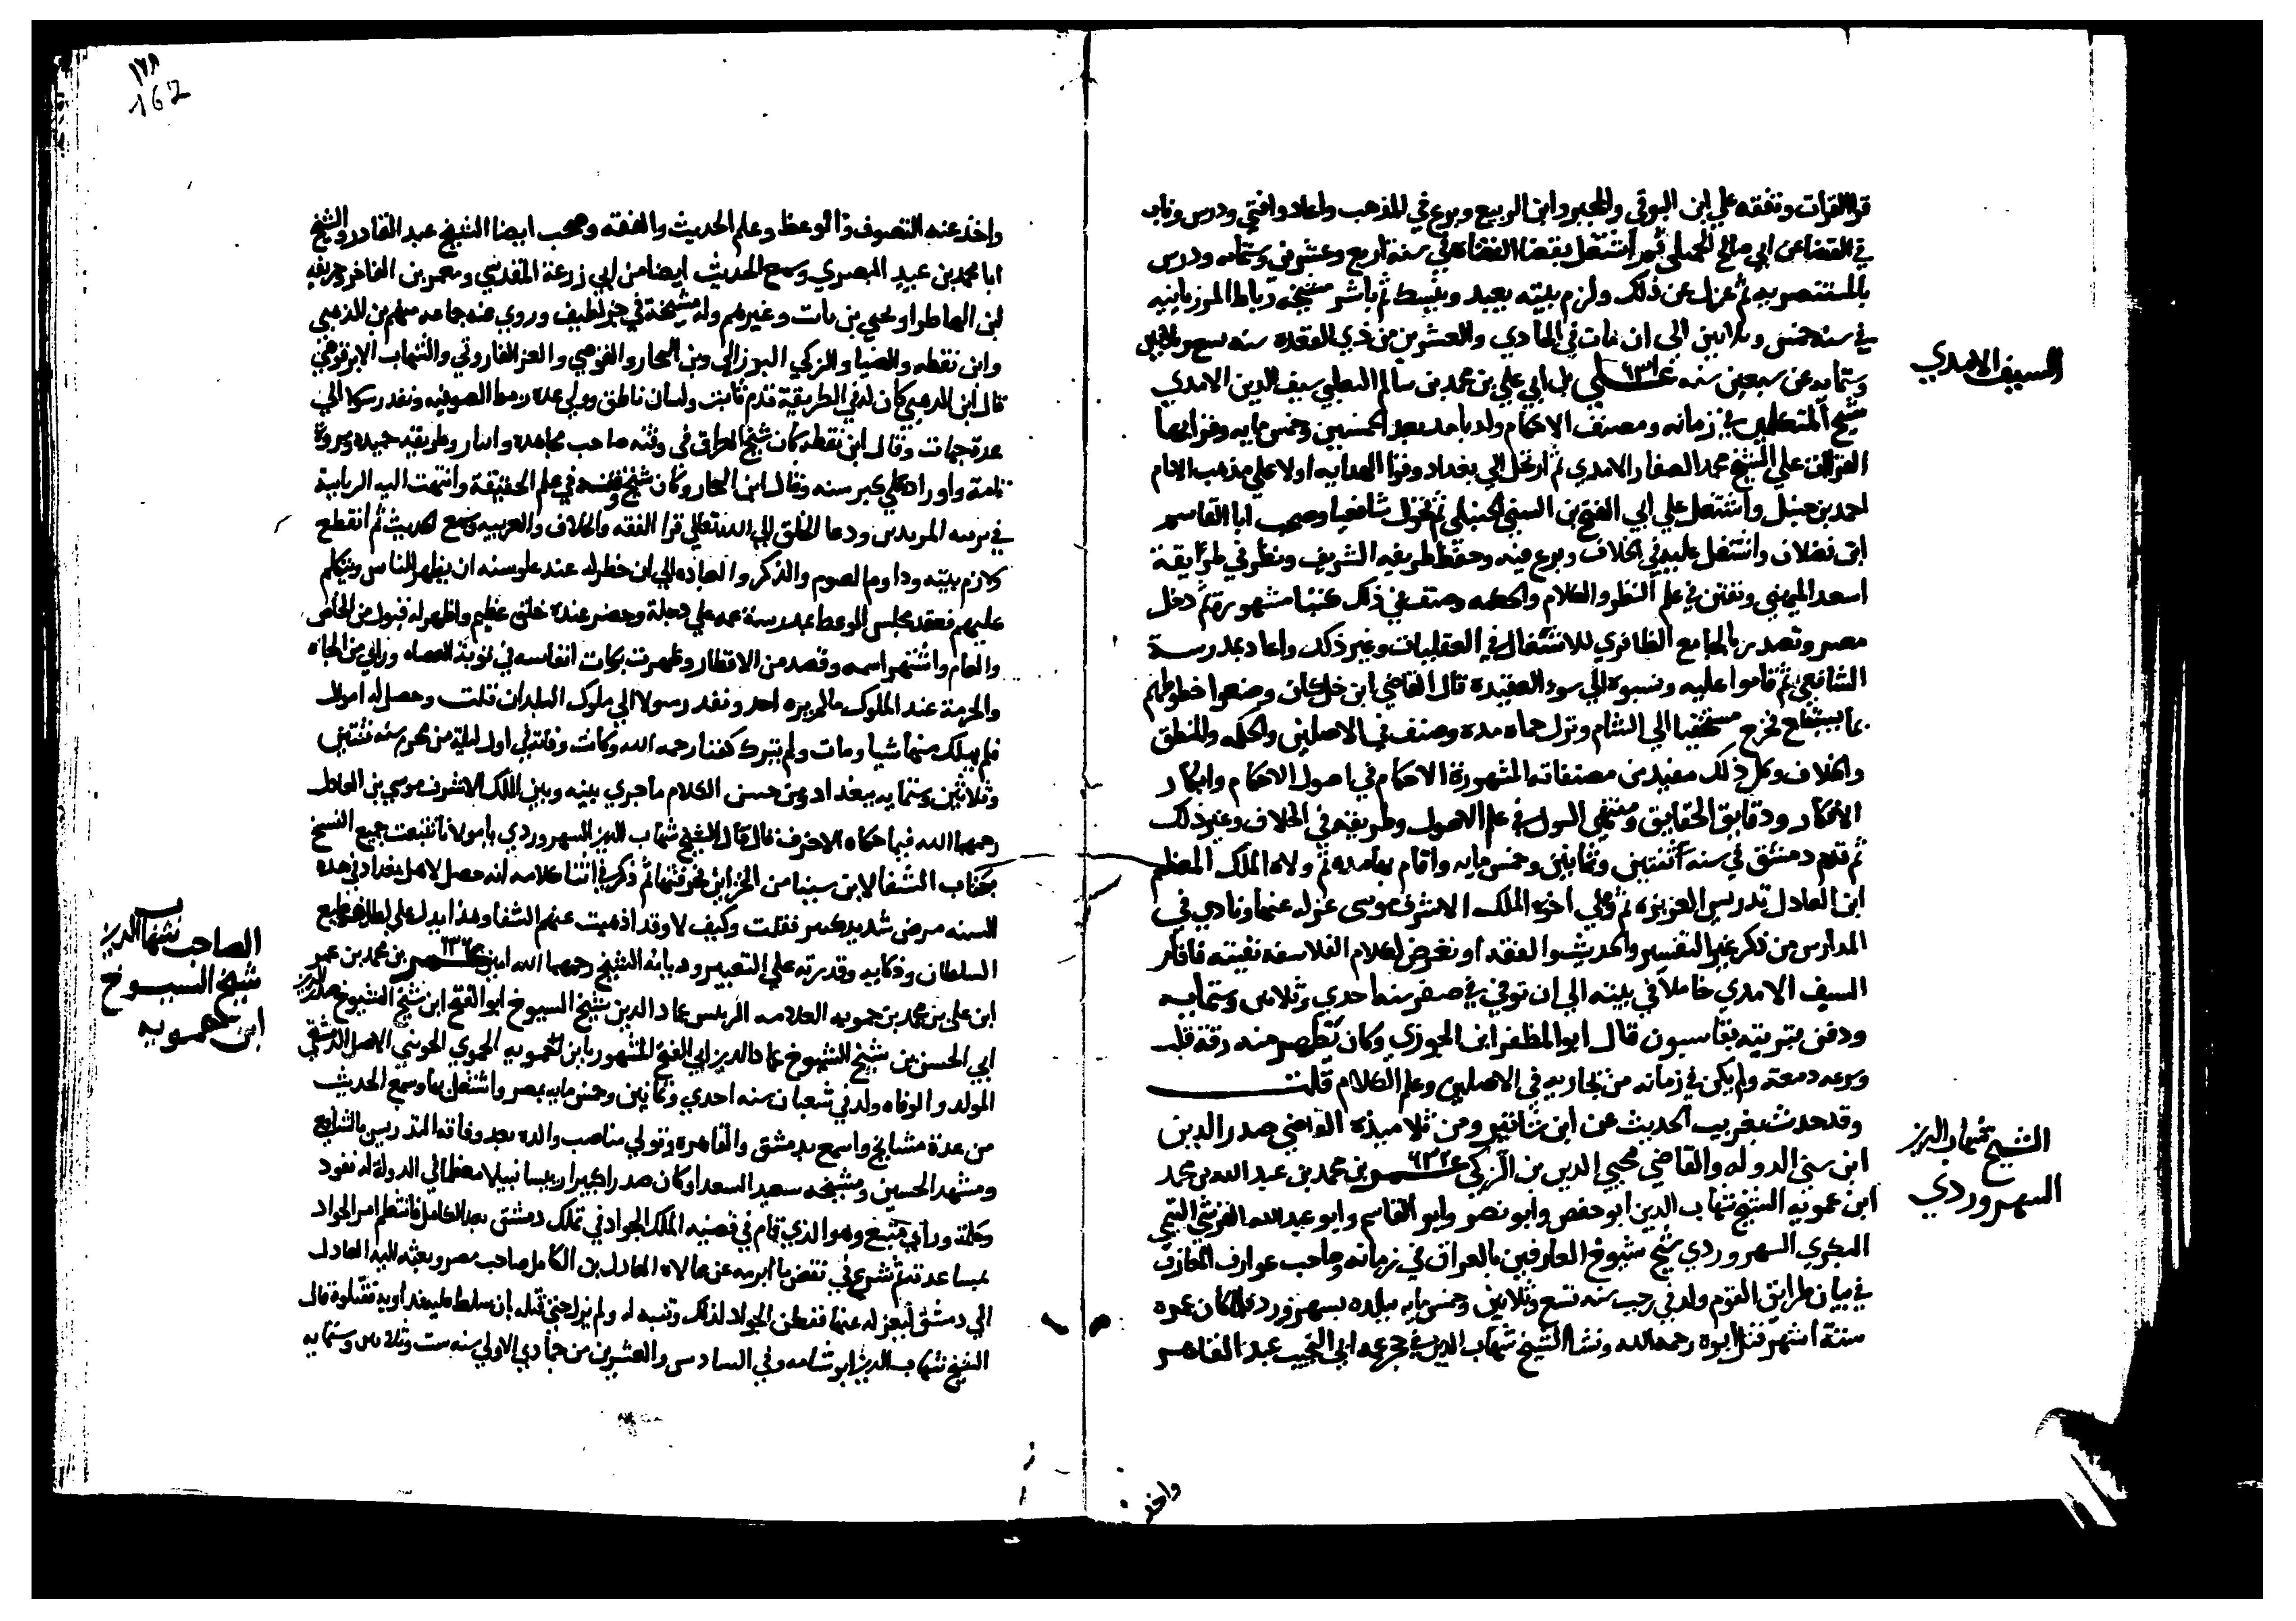 قرا القرات وتفقه علي ابن البوقي والمجير وابن الربيع وبرع في المذهب واعاد وافتي ودرس وناب
في القضا عن ابي صالح الجيلي ثم اشتغل بقضا القضاة في سنة اربع وعشرين وستمايه ودرس
بالمستنصريه ثم عزل عن ذلك ولزم بيته يعيد ويبسط ثم باشر مشيخه رباط المرزبانيه
في سنه خمس وثلاثين الي ان مات في الحادي والعشرين من ذي القعده سنه سبع وثلاثين
وستمايه عن سبعين سنه علي بن ابي علي بن محمد بن سالم التغلبي سيف الدين الامدي
٦٣١
السيف الامدي
شيخ المتكلمين في زمانه ومصنف الاحكام ولد بامد بعد الخمسين وخمس مايه وقرا بها
القراان علي الشيخ محمد الصفار الامدي ثم ارتحل الي بغداد وقرا الهدايه اولا علي مذهب الامام
احمد بن حنبل واشتغل علي ابي الفتح بن المني الحنبلي ثم تحول شافعيا وصحب ابا القاسم
ابن فضلان واشتغل عليه في الخلاف وبرع فيه وحفظ طريقه الشريف ونظر في طرايقة
اسعد الميهني وتفنن في علم النظر والكلام والحكمه وصنف في ذلك كتبا مشهورة ثم دخل
مصر وتصدر بالجامع الظافري للاشتغال في العقليات وغير ذلك واعاد بمدرسة
الشافعي ثم قاموا عليه ونسبوه الي سوء العقيدة قال القاضي ابن خلكان وضعوا خطوطهم
بما يستباح فخرج مستخفيا الي الشام ونزل حماه مدة وصنف في الاصلين والحكمه والمنطق
والخلاف وكل ذلك مفيد من مصنفاته المشهورة الاحكام في اصول الاحكام وابكار
الافكار ودقايق الحقايق ومنتهي السول في علم الاصول وطريقه في الخلاف وغير ذلك
ثم قدم دمشق في سنه اثنتين وثمانين وخمس مايه واقام بها مده ثم ولاه الملك المعظم
ابن العادل تدريس العزيزه ثم ولي اخوه الملك الاشرف موسى عزله عنها ونادي في
المدارس من ذكر غير التفسير والحديث والفقه او تعرض لكلام الفلاسفه نفيته فاقام
السيف الامدي خاملا في بيته الي ان توفي في صفر سنه احدي وثلاثين وستمايه
ودفن بتربته بقاسيون قال ابو المظفر ابن الجوزي وكان يظهر منه رقة قلب
وسرعه دمعة ولم يكن في زمانه من يجاريه في الاصلين وعلم الكلام قلت
وقد حدث بغريب الحديث عن ابن شاتيل ومن تلاميذه القاضي صدر الدين
ابن سني الدوله والقاضي محيي الدين بن الزكي عمر بن محمد بن عبد الله بن محمد
٦٣٢
الشيخ شهاب الدين
السهروردي
ابن عمويه الشيخ شهاب الدين ابو حفص وابو نصر وابو القاسم وابو عبد الله القرشي التيمي
البكري السهروردي شيخ شيوخ العارفين بالعراق في زمانه وصاحب عوارف المعارف
في بيان طرايق القوم ولد في رجب سنه تسع وثلاثين وخمس مايه ببلده بسهرورد فلما كان عمره
ستة اشهر قتل ابوه رحمه الله ونشا الشيخ شهاب الدين في حجر عمه ابي النجيب عبد القاهر
واخذ
١٦٢
162
واخذ عنه التصوف والوعظ وعلم الحديث والفقه وصحب ايضا الشيخ عبد القادر والشيخ
ابا محمد بن عبيد البصري وسمع الحديث ايضا من ابي زرعة المقدسي ومعمر بن الفاخر وجريفه
ابن الهاطرا ويحيي بن ثابت وغيرهم وله مشيخة في جز لطيف وروي عنه جماعه منهم بن الدبيثي
وابن نقطه والضيا والزكي البرزالي وبن النجار والقوصي والعز الفاروثي والشهاب الابرقوهي
قال ابن الدبيثي كان له في الطريقة قدم ثابت ولسان ناطق وولي عدة ربط للصوفيه ونفذ رسولا الي
عدة جهات وقال ابن نقطه كان شيخ العراق في وقته صاحب مجاهدة وايثار وطريقه حميده ومروة
تامة واوراد علي كبر سنه وقال ابن النجار وكان شيخ وقته في علم الحقيقة وانتهت اليه الرياسة
في تربيه المريدين ودعا الخلق الي الله تعالي قرا الفقه والخلاف والعربيه وسمع الحديث ثم انقطع
ولازم بيته وداوم الصوم والذكر والعباده الي ان خطر له عند علو سنه ان يظهر للناس ويتكلم
عليهم فعقد مجلس الوعظ بمدرسة عمه علي دجلة وحضر عنده خلق عظيم وظهر له قبول من الخاص
والعام واشتهر اسمه وقصد من الاقطار وظهرت بركات انفاسه في توبة العصاه وراي من الجاه
والحرمة عند الملوك مالم يره احد ونفذ رسولا الي ملوك البلدان قلت وحصل له اموال
فلم يملك منها شيا ومات ولم يترك كفنا رحمه الله وكانت وفاته في اول ليلة من محرم سنه ثنتين
وثلاثين وستمايه ببغداد ومن حسن الكلام ما جري بينه وبين الملك الاشرف موسي بن العادل
رحمهما الله فيما حكاه الاشرف قال قال الشيخ شهاب الدين السهروردي يا مولانا تتبعت جميع النسخ
بكتاب الشفا لابن سينا من الخزاين فحرقتها ثم ذكر في اثنا كلامه انه حصل لاهل بغداد في هذه
السنه مرض شديد كثير فقلت وكيف لا وقد اذهبت عنهم الشفا وهذا يدل علي لطف طبع
السلطان وذكايه وقدرته علي التعبير وديانة الشيخ رحمهما الله امين عمر بن محمد بن عمر
٦٣٦
الصاحب شهاب الدين
شيخ الشيوخ
ابن حمويه
ابن علي بن محمد بن حمويه العلامه الرييس عماد الدين شيخ الشيوخ ابو الفتح ابن شيخ الشيوخ صدر الدين
ابي الحسن بن شيخ الشيوخ عماد الدين ابي الفتح المشهور بابن حمويه الحموي الجويني الاصل الدمشقي
المولد والوفاه ولد في شعبان سنه احدي وثمانين وخمس مايه بمصر واشتغل بها وسمع الحديث
من عدة مشايخ واسمع بدمشق والقاهره وتولي مناصب والده بعد وفاته التدريس بالشافعي
ومشهد الحسين ومشيخه سعيد السعدا وكان صدرا كبيرا رييسا نبيلا معظما في الدولة له نفود
وكلمة وراي متبع وهو الذي قام في قضيه الملك الجواد في تملك دمشق بعد الكامل فانتظم امر الجواد
بمساعدته ثم شرع في نقض ما ابرمه عن ممالاه العادل بن الكامل صاحب مصر وبعثه اليه العادل
الي دمشق ليعزله عنها ففطن الجواد لذلك وتنبه له ولم يزل حتي قتله بان سلط عليه فداويه فقتلوه قال
الشيخ شهاب الدين ابو شامه وفي السادس والعشرين من جمادي الاولي سنه ست وثلاثين وستمايه